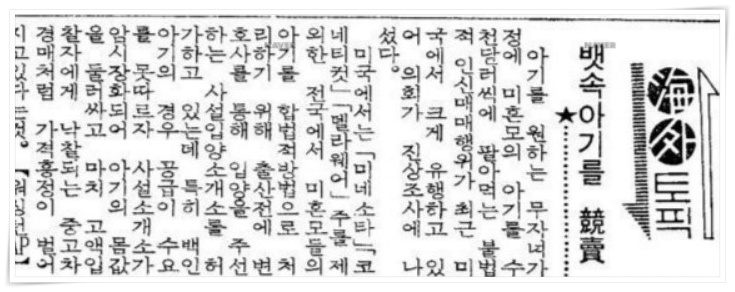 海外토픽
뱃속아기를 競賣
★
아기를 원하는 무자녀가
정에 미혼모의 아기를 수
천달러씩에 팔아먹는 불법
적 인신매매행위가 최근 미
국에서 크게 유행하고 있
어 의회가 진상조사에 나
섰다.
미국에서는 「미네소타」 「코
네티컷」 「멜라웨어」 주를 제
외한 전국에서 미혼모들의
아기를 합법적방법으로 처
리하기 위해 출산전에 변
호사를 통해 입양을 주선
하는 사설입양소개소를 허
가하고 있는데 특히 백인
아기의 경우 공급이 수요
를 못따르자 사설소개소가
암시장화되어 아기의 몸값
을 둘러싸고 마치 고액입
찰자에게 낙찰되는 중고차
경매처럼 가격흥정이 벌어
지고있다는것. 【워싱턴AP】